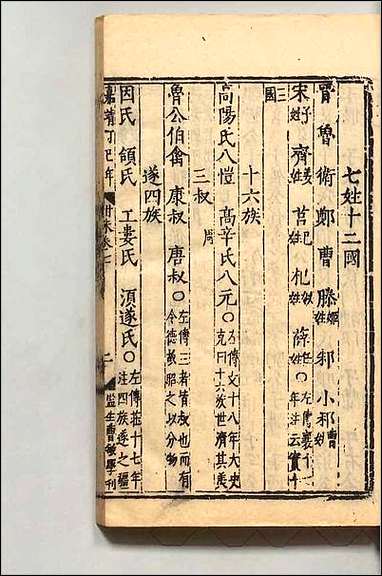 七姓十二國
晉 魯 衛 鄭 曹 滕姬姓 邾 小邾曹姓
宋子姓 齊姜姓 莒己姓 杞姒姓 薛任姓〇左傳襄十一年注云實十
三國
十六族
高陽氏八愷 高辛氏八元〇左傳文十八年大史克曰十六族世濟其美
三叔 周
魯公伯禽 康叔 唐叔〇左傳三者皆叔也而有令德故昭之以分物
遂四族
因氏 頜氏 工婁氏 須遂氏〇左傳莊十七年注四族遂之彊
嘉靖丁巳年 卷七 二 監生曹 學刊